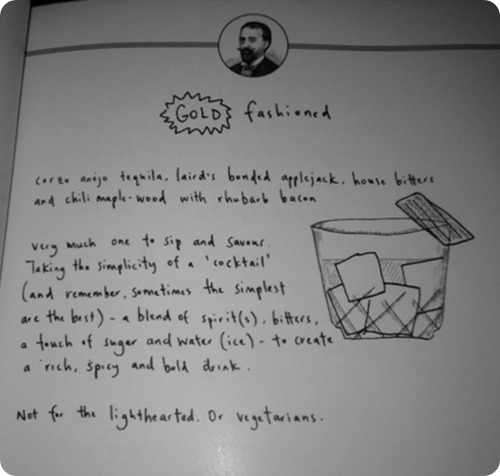 GOLD fashioned
corzo anijo tequila, laird's bonded applejack, house bitters
and chili maple-wood with rhubarb bacon
very much one to sip and savour.
Taking the simplicity of a 'cocktail'
(and remember, sometimes the simplest
are the best) - a blend of spirit(s), bitters,
a touch of sugar and water (ice) - to create
a rich, spicy and bold drink.
Not for the lighthearted. Or vegetarians.